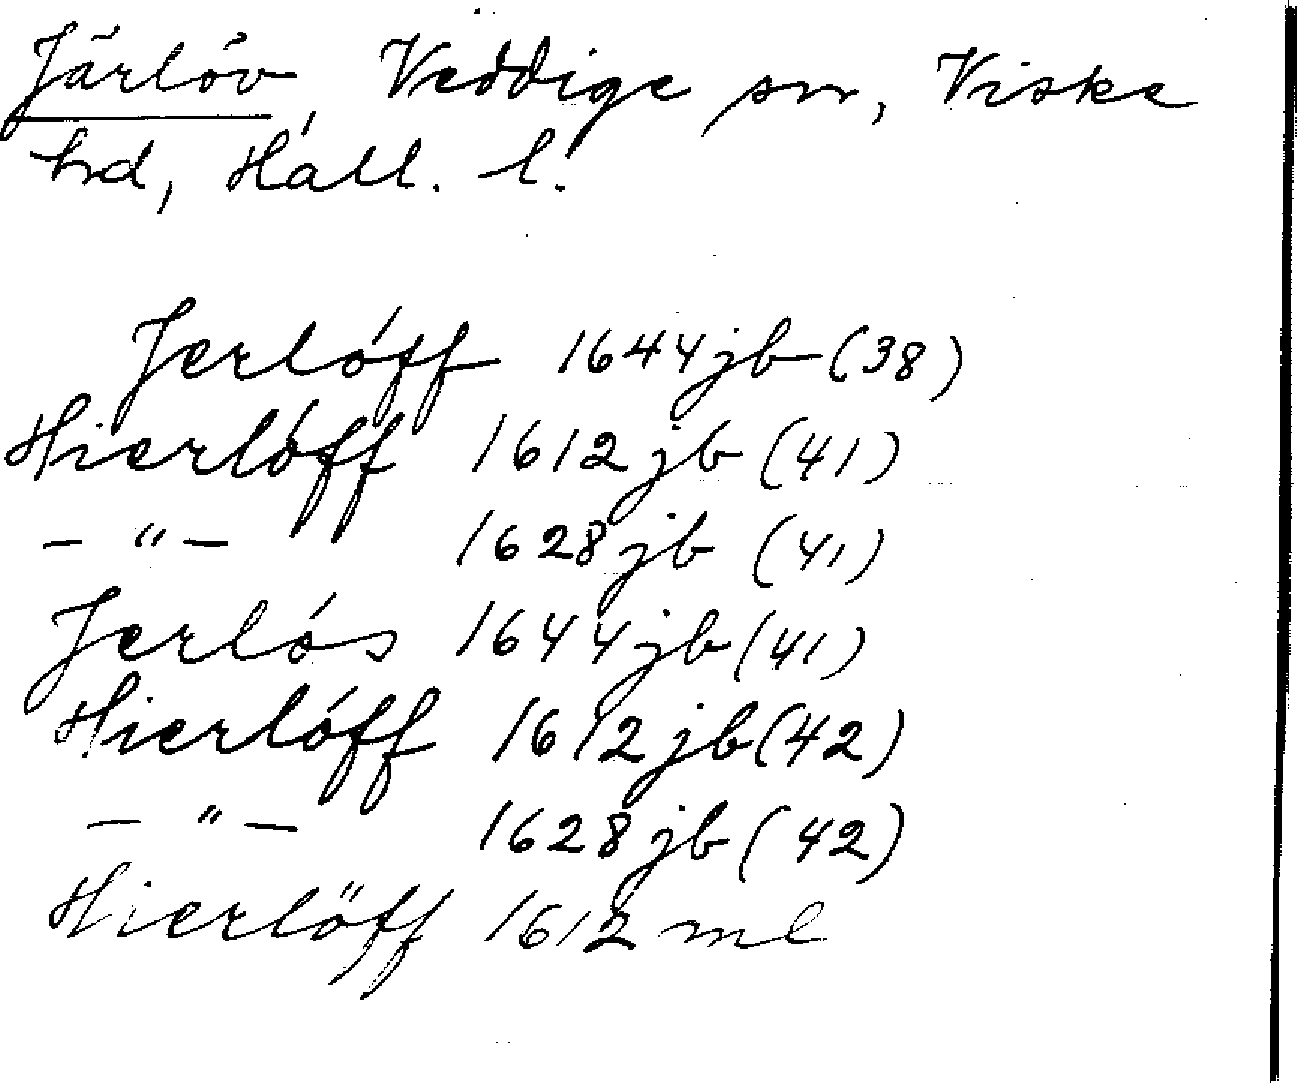 Järlöv, Veddige sn, Viske
hd, Hall. l.
Jerlöff 1644 jb (38)
Hierlöff 1612 jb (41)
— " — 1628 jb (41)
Jerlös 1644 jb (41)
Hierlöff 1612 jb (42)
— " — 1628 jb (42)
Hierlöff 1612 ml